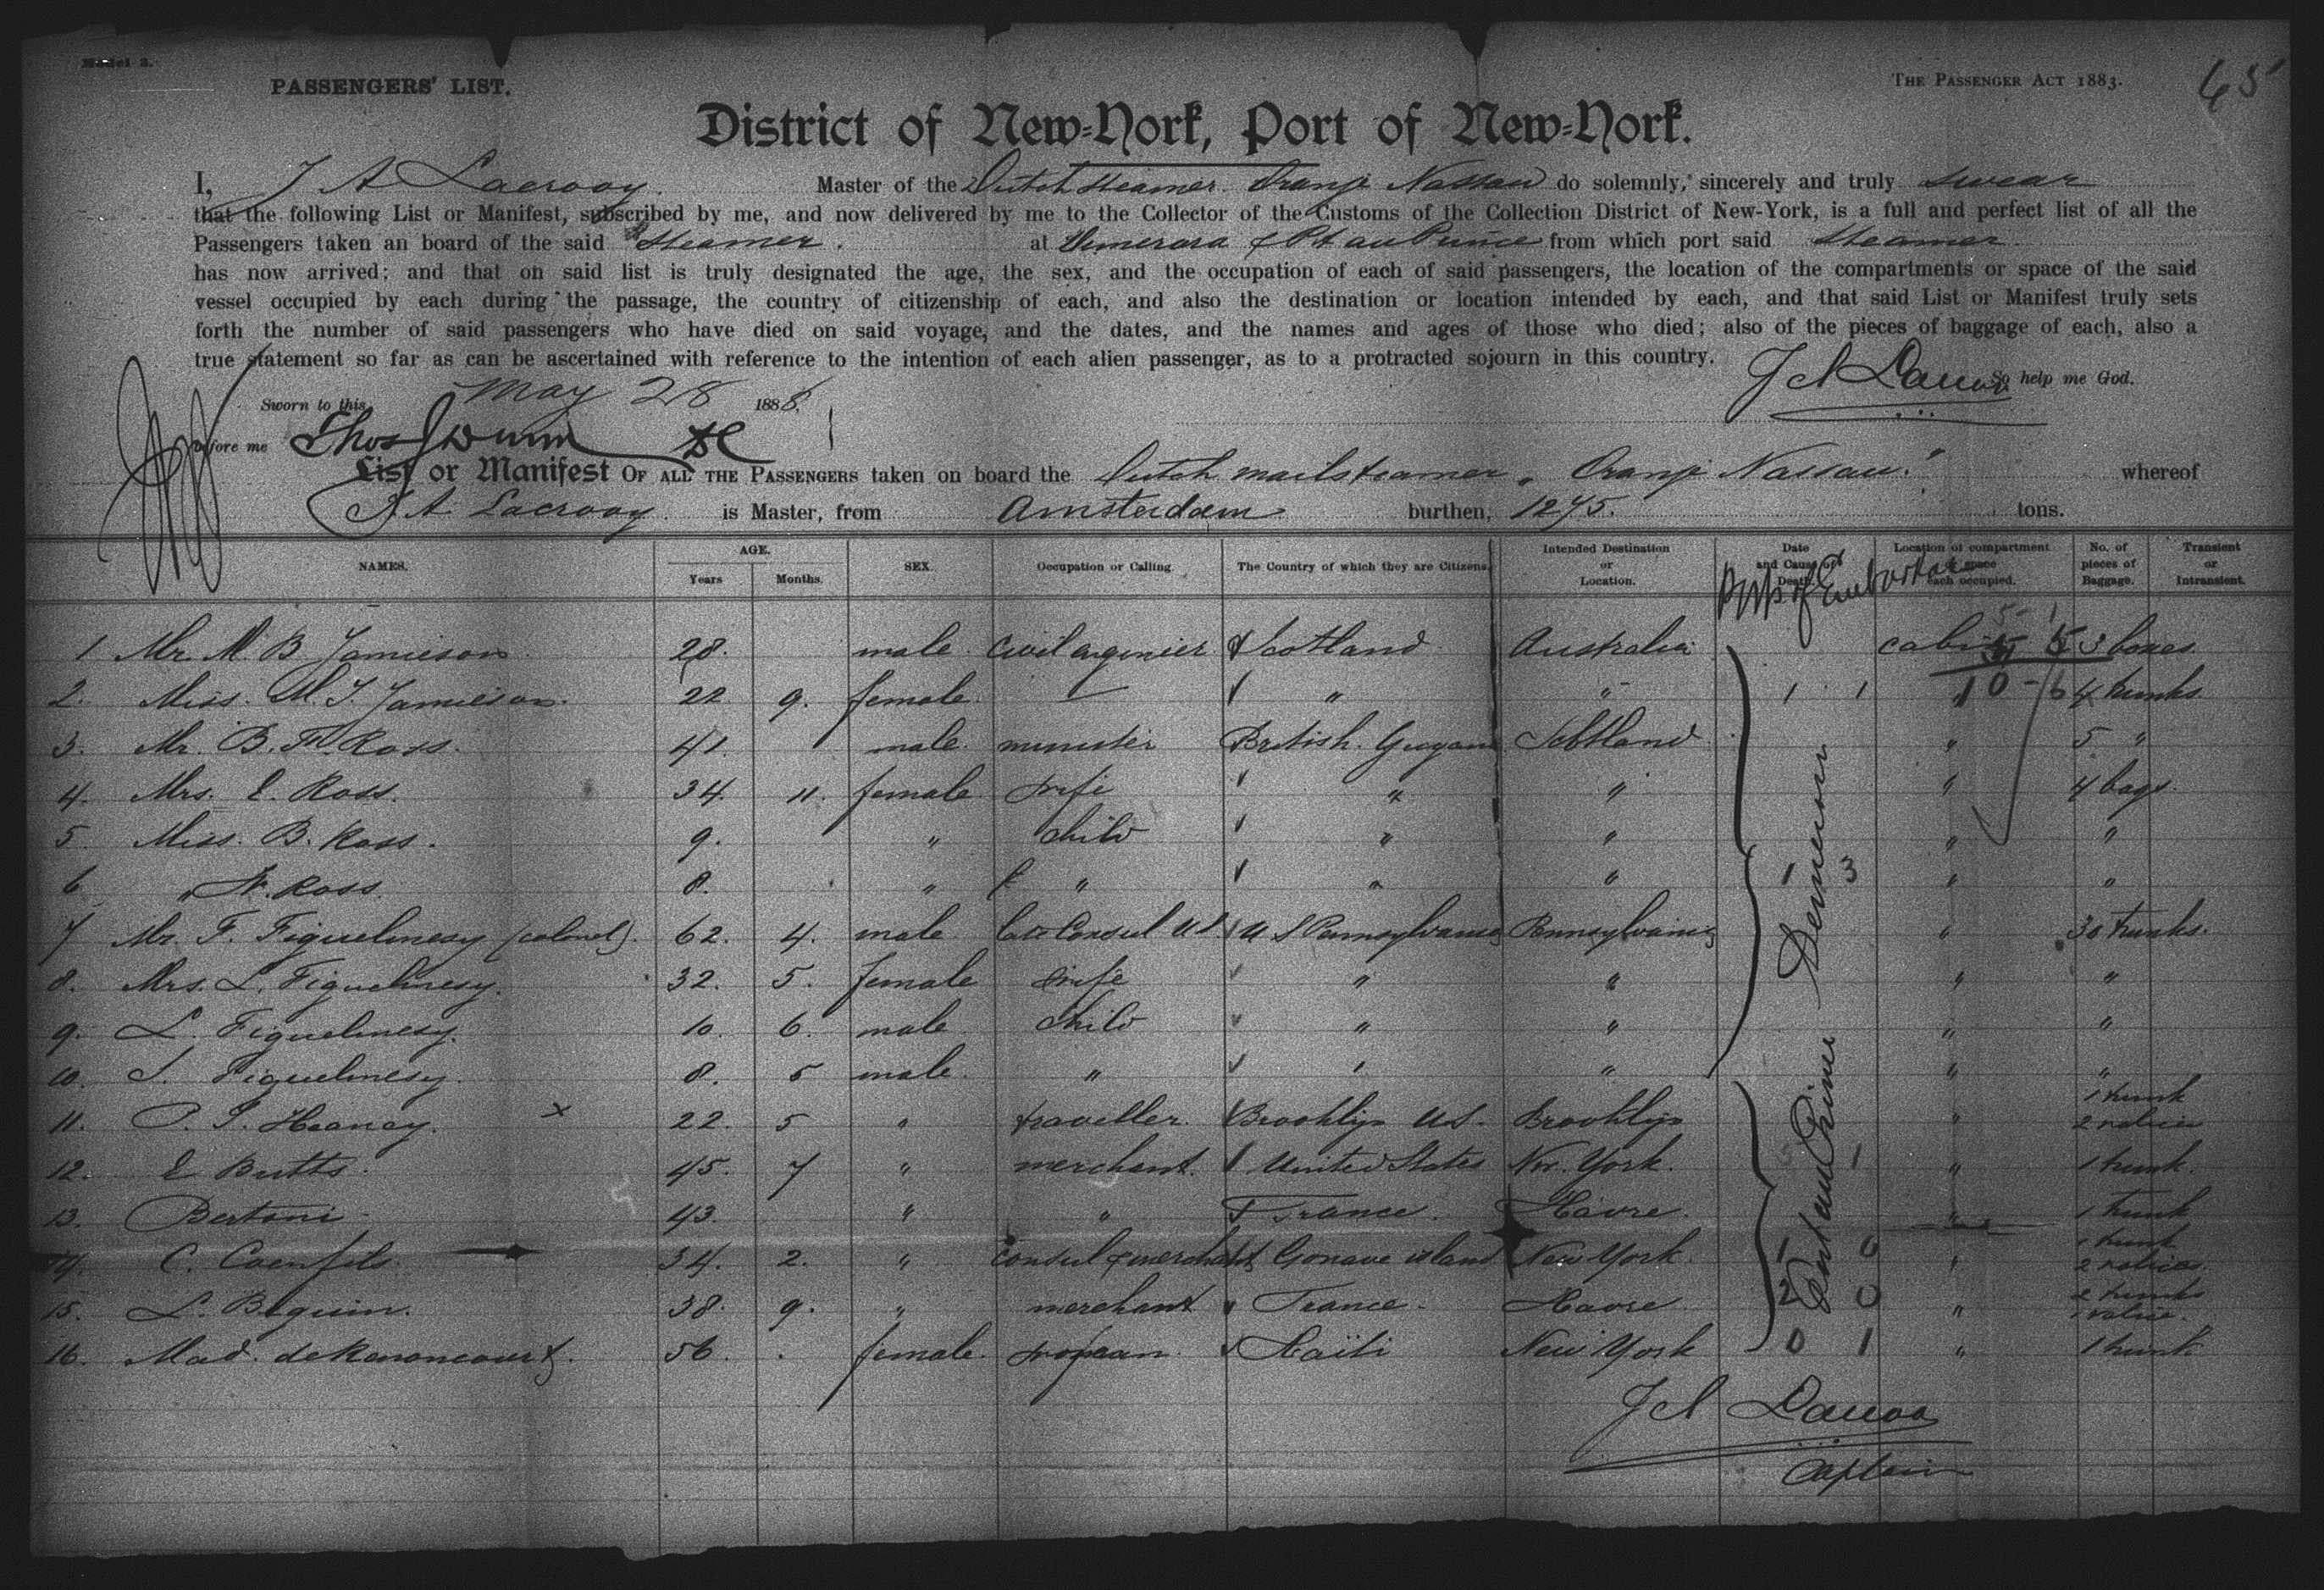 Model 2.
PASSENGERS' LIST.
THE PASSENGER ACT 1883.
65
District of New-York, Port of New-York.
I, J A Lacrooy Master of the Dutch Steamer Oranje Nassau do solemnly, sincerely and truly swear
that the following List or Manifest, subscribed by me, and now delivered by me to the Collector of the Customs of the Collection District of New-York, is a full and perfect list of all the
Passengers taken an board of the said Steamer. at Demerara & Pt au Prince from which port said Steamer
has now arrived; and that on said list is truly designated the age, the sex, and the occupation of each of said passengers, the location of the compartments or space of the said
vessel occupied by each during the passage, the country of citizenship of each, and also the destination or location intended by each, and that said List or Manifest truly sets
forth the number of said passengers who have died on said voyage, and the dates, and the names and ages of those who died; also of the pieces of baggage of each, also a
true statement so far as can be ascertained with reference to the intention of each alien passenger, as to a protracted sojourn in this country.
So help me God.
Sworn to this May 28 1888.
before me Thos J Dunn DC
List or Manifest OF ALL THE PASSENGERS taken on board the Dutch mailsteamer "Oranje Nassau" whereof
J. A Lacrooy is Master, from Amsterdam burthen, 1275. tons.
NAMES. AGE. Years Months. SEX. Occupation or Calling. The Country of which they are Citizens. Intended Destination or Location. Date and Cause of Death. Location of compartment or space each occupied. No. of pieces of Baggage. Transient or Intransient.
1 Mr. M. B Jamieson 28. male civil enginier Scotland Australia cabin 3 boxes
2. Miss. M. J. Jamieson. 22 9. female — " " 1 1 " 4 trunks
3. Mr. B. Th. Ross. 41. male minister British. Guyana Schtland " 5 "
4. Mrs. E. Ross. 34. 11. female wife " " " 4 bags.
5. Miss. B. Ross. 9. " child " " " "
6 " N. Ross. 8. " " " " 1 3 " "
7 Mr. F. Figuelmesy (colonel). 62. 4. male late Consul U S. U S Pennsylvania Pennsylvania " 30 trunks.
8. Mrs. L. Figuelmesy. 32. 5. female wife " " " "
9. L. Figuelmesy. 10. 6. male child " " " "
10. S. Figuelmesy. 8. 5 male " " " " "
11. P. J. Heaney. x 22. 5 " traveller. Brooklyn US. Brooklyn " 1 trunk 2 valies
12. E Butts. 45. 7 " merchant. United States New. York. 1 " 1 trunk.
13. Bertoni 43. " " France. Havre. " 1 trunk
14. C. Caenfils. 34. 2. " consul & merchant Gonave island New York. 1 0 " 1 trunk 2 valices.
15. L. Beguin. 38. 9. " merchant France. Havre. 2 0 " 2 trunks 1 valice.
16. Mad. de Kenoncourt. 56. female Haïti New York 0 1 " 1 trunk
Demerara
Port au Prince
Captain